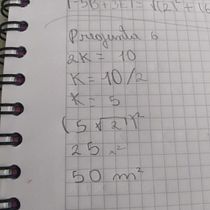 Pregunta 6
2K = 10
K = 10/2
K = 5
(5√2)²
50 m²